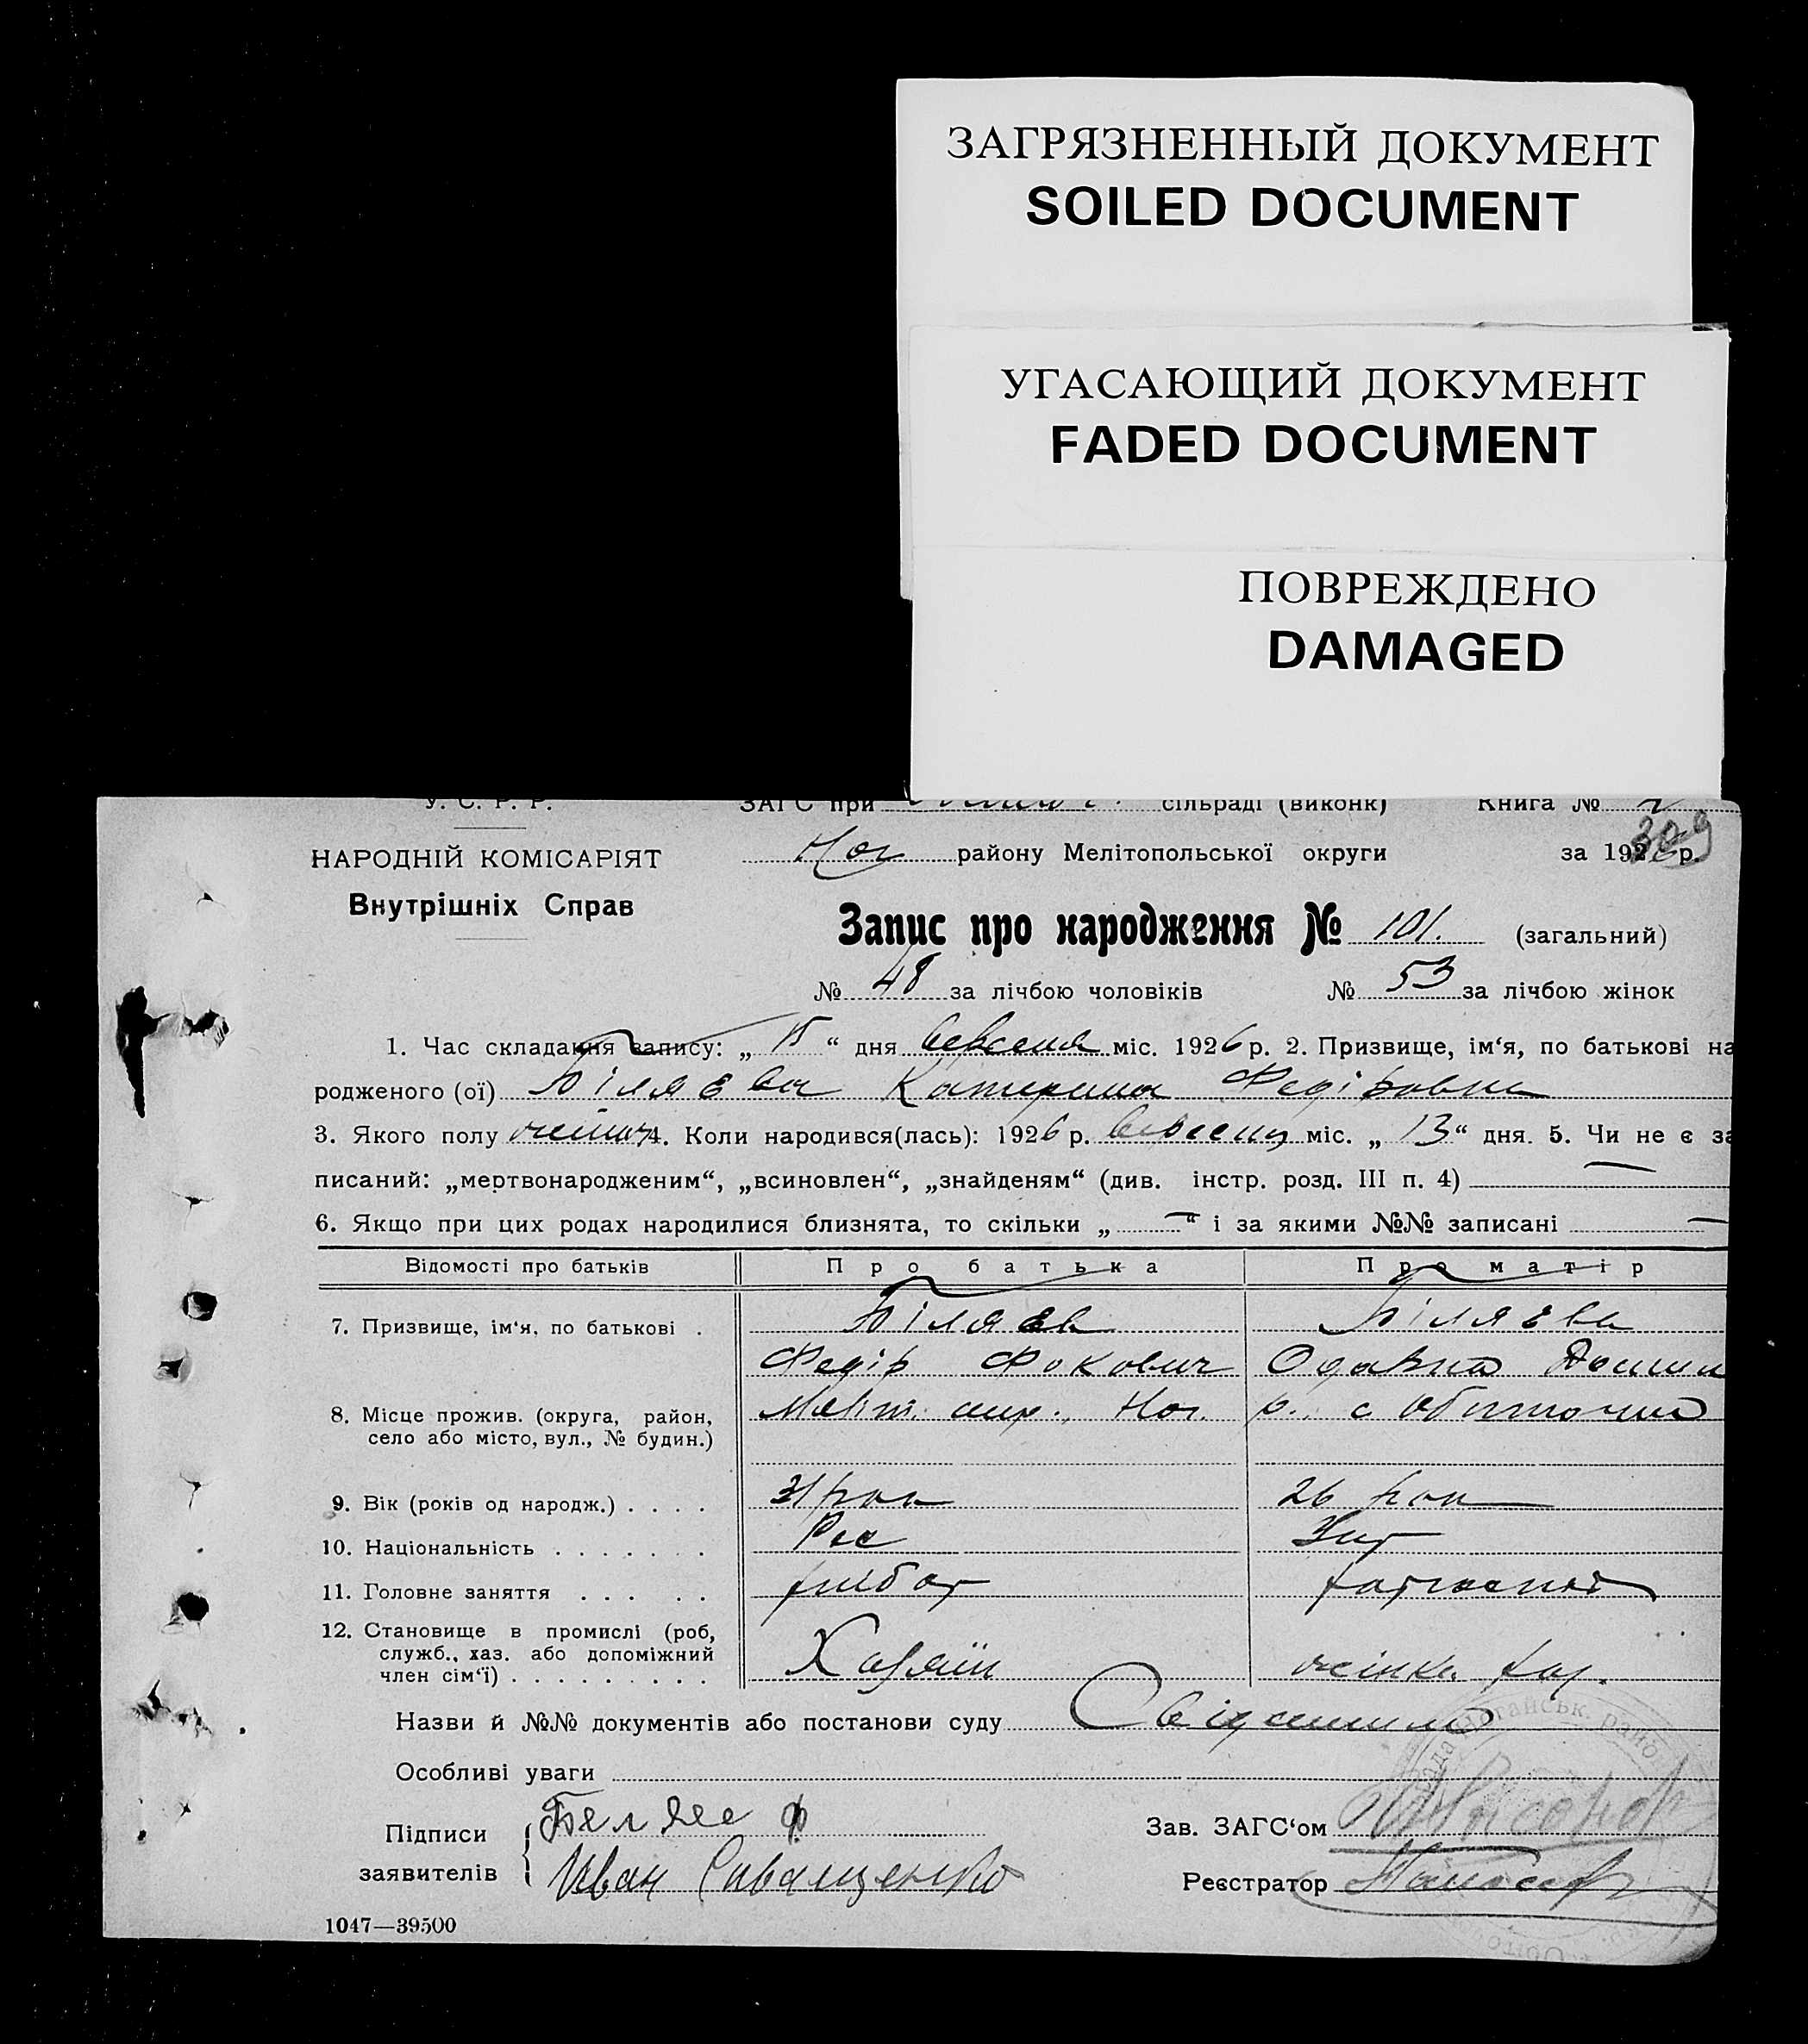 ЗАГРЯЗНЕННЫЙ ДОКУМЕНТ
SOILED DOCUMENT
УГАСАЮЩИЙ ДОКУМЕНТ
FADED DOCUMENT
ПОВРЕЖДЕНО
DAMAGED
У. С. Р. Р. ЗАГС при сільраді (виконк) Книга №
НАРОДНІЙ КОМІСАРІЯТ Ног району Мелітопольської округи за 1926 р. 309
Внутрішніх Справ
Запис про народження № 101. (загальний)
№ 48 за лічбою чоловіків № 53 за лічбою жінок
1. Час складання запису: „ 15 “ дня вересня міс. 1926 р. 2. Призвище, ім‘я, по батькові на
родженого (ої) Біляєва Катерина Федіровна
3. Якого полу жіноч 4. Коли народився(лась): 1926 р. вересня міс. „ 13 “ дня. 5. Чи не є за
писаний: „мертвонародженим“, „всиновлен“, „знайденям“ (див. інстр. розд. III п. 4) —
6. Якщо при цих родах народилися близнята, то скільки „ — “ і за якими №№ записані —
Відомості про батьків Про батька Про матір
7. Призвище, ім‘я, по батькові . Біляєв Біляєва
Федір Фокович
8. Місце прожив. (округа, район, Меліт. окр. Ног. р. с Обиточна
село або місто, вул., № будин.)
9. Вік (років од народж.) . . . . 31 рок 26 рок
10. Національність . . . . . . Рос Укр
11. Головне заняття . . . . . хлібор
12. Становище в промислі (роб, служб., хаз. або допоміжний член сім‘ї) . . . . . . . . . Хазяїн жінка хаз.
Назви й №№ документів або постанови суду
Особливі уваги
Підписи Беляев Ф Зав. ЗАГС‘ом
заявителів Иван Сиващенко Реєстратор
1047—39500